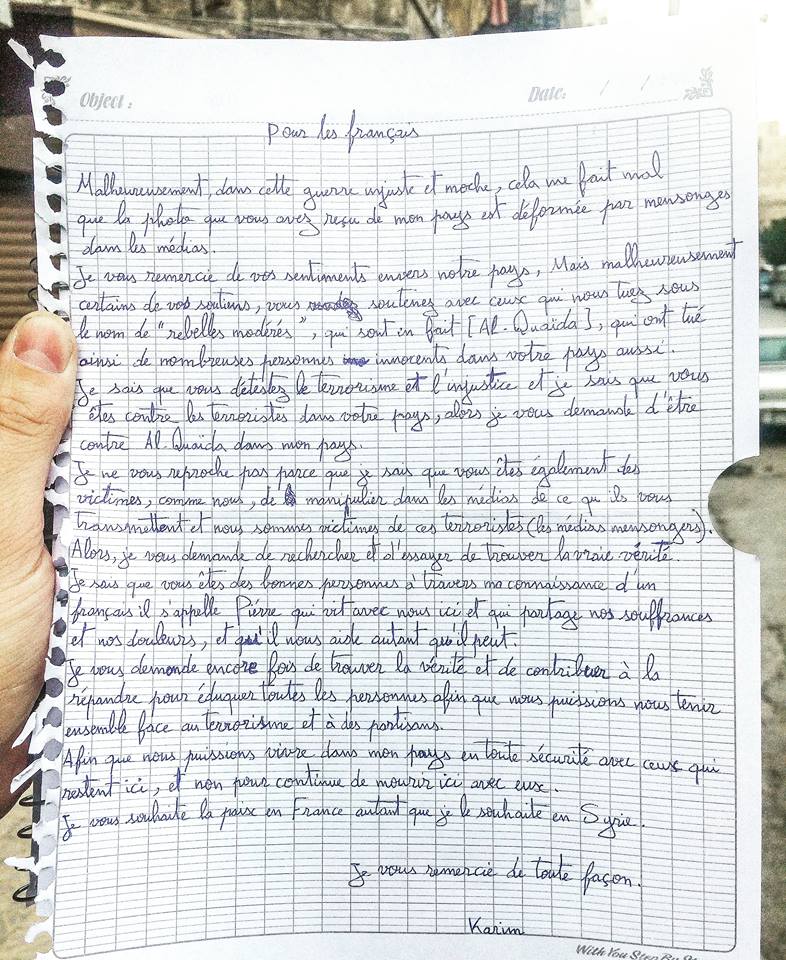 Object :
Date: / /
Pour les français
Malheureusement, dans cette guerre injuste et moche, cela me fait mal
que la photo que vous avez reçu de mon pays est déformée par mensonges
dans les médias.
Je vous remercie de vos sentiments envers notre pays, Mais malheureusement
certains de vos soutiens, vous soutenez avec ceux qui nous tuez sous
le nom de "rebelles modérés", qui sont in fait [Al-Quaïda], qui ont tué
ainsi de nombreuses personnes innocents dans votre pays aussi.
Je sais que vous détestez le terrorisme et l'injustice et je sais que vous
êtes contre les terroristes dans votre pays, alors je vous demande d'être
contre Al-Quaïda dans mon pays.
Je ne vous reproche pas parce que je sais que vous êtes également des
victimes, comme nous, de manipulier dans les médias de ce qu'ils vous
transmettent et nous sommes victimes de ces terroristes (les médias mensongers).
Alors, je vous demande de rechercher et d'essayer de trouver la vraie vérité.
Je sais que vous êtes des bonnes personnes à travers ma connaissance d'un
français il s'appelle Piérre qui vit avec nous ici et qui partage nos souffrances
et nos douleurs, et qu'il nous aide autant qu'il peut.
Je vous demande encore fois de trouver la vérité et de contribuer à la
répandre pour éduquer toutes les personnes afin que nous puissions nous tenir
ensemble face au terrorisme et à des partisans.
Afin que nous puissions vivre dans mon pays en toute sécurité avec ceux qui
restent ici, et non pour continue de mourir ici avec eux.
Je vous souhaite la paix en France autant que je le souhaite en Syrie.
Je vous remercie de toute façon.
Karim
With You Step By